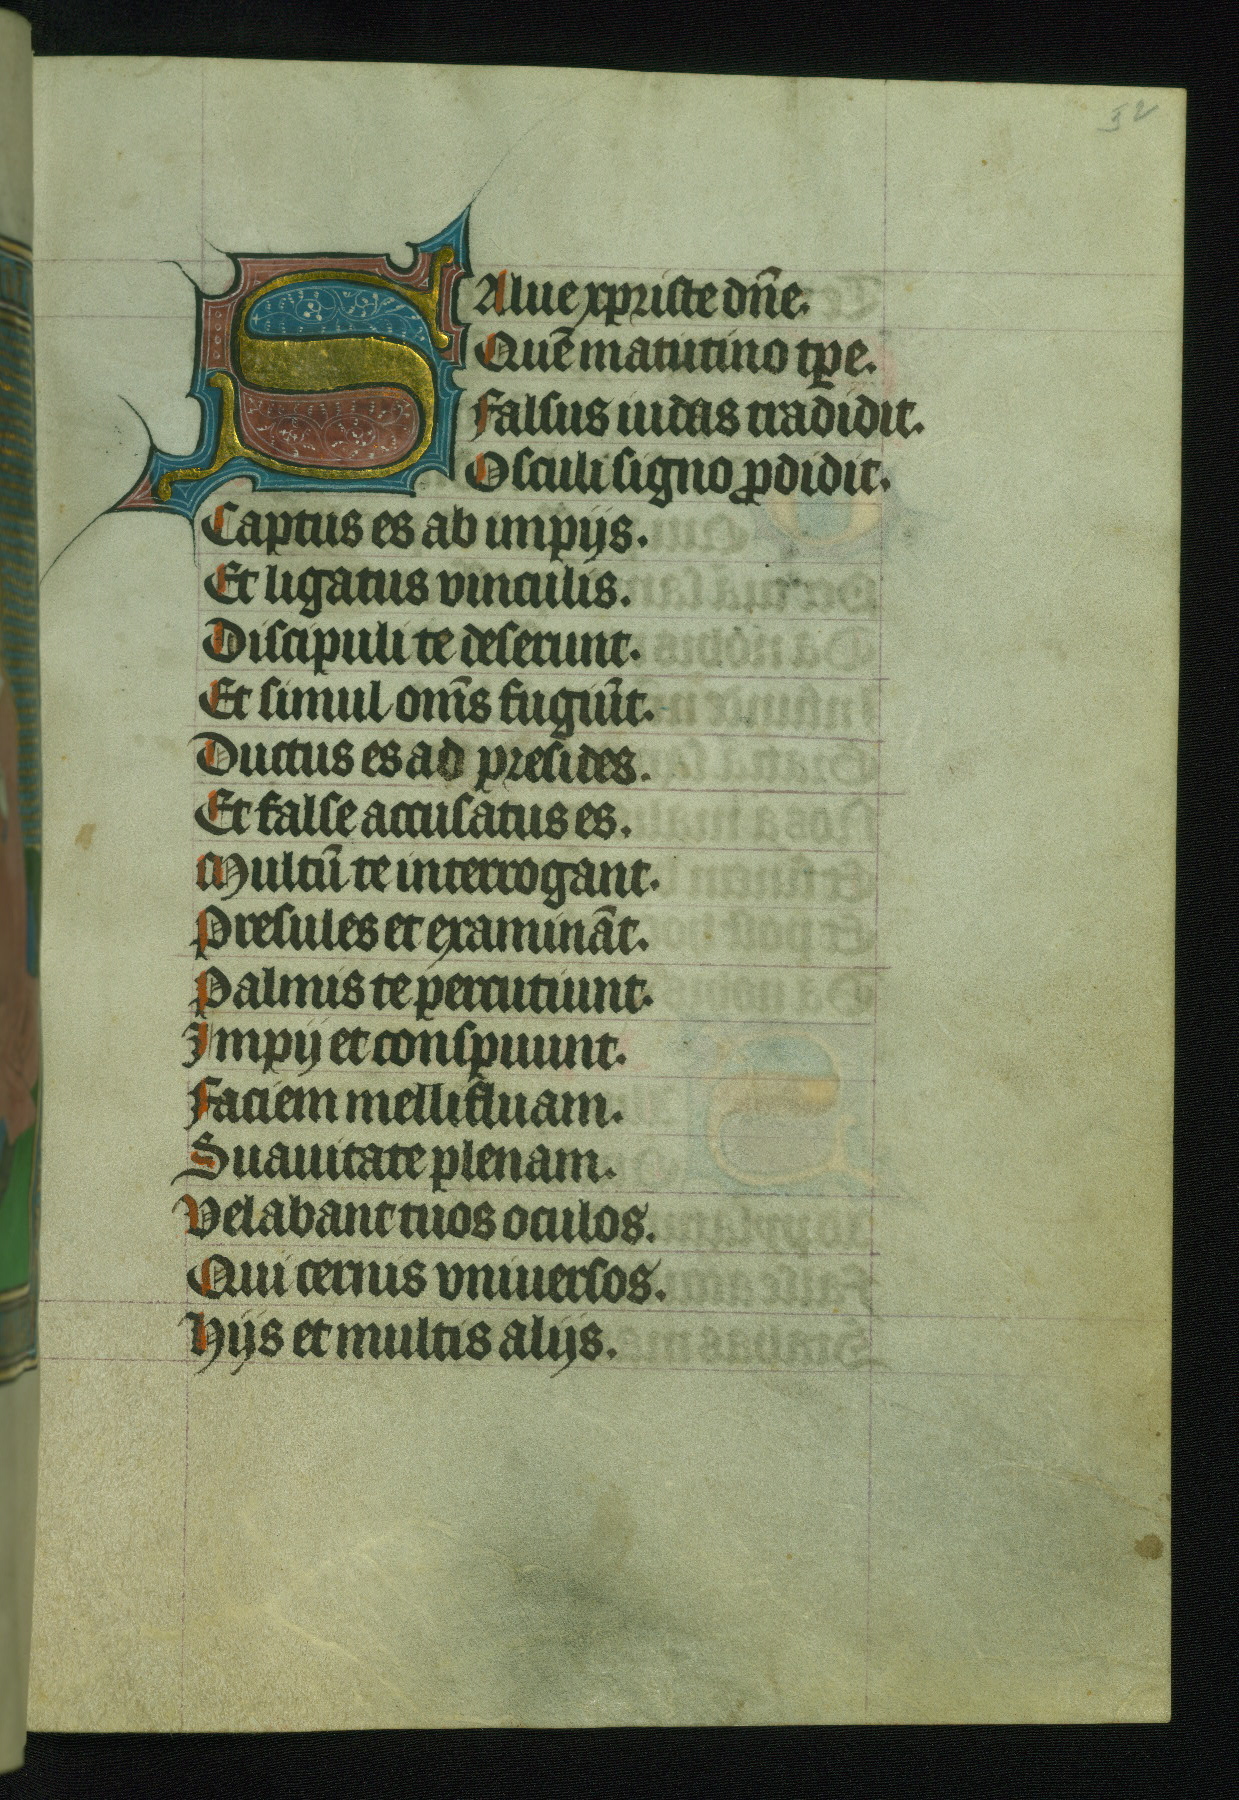 52
SAlue xpriste dn̄e.
Quē matutino tp̄e.
Falsus iudas tradidit.
Osculi signo ꝑdidit.
Captus es ab impijs.
Et ligatus vinculis.
Discipuli te deserunt.
Et simul om̄s fugiūt.
Ductus es ad presides.
Et false accusatus es.
Multū te interrogant.
Presules et examināt.
Palmis te percutiunt.
Impij et conspuunt.
Faciem mellifluam.
Suauitate plenam.
Velabant tuos oculos.
Qui cernis vniuersos.
Hijs et multis alijs.